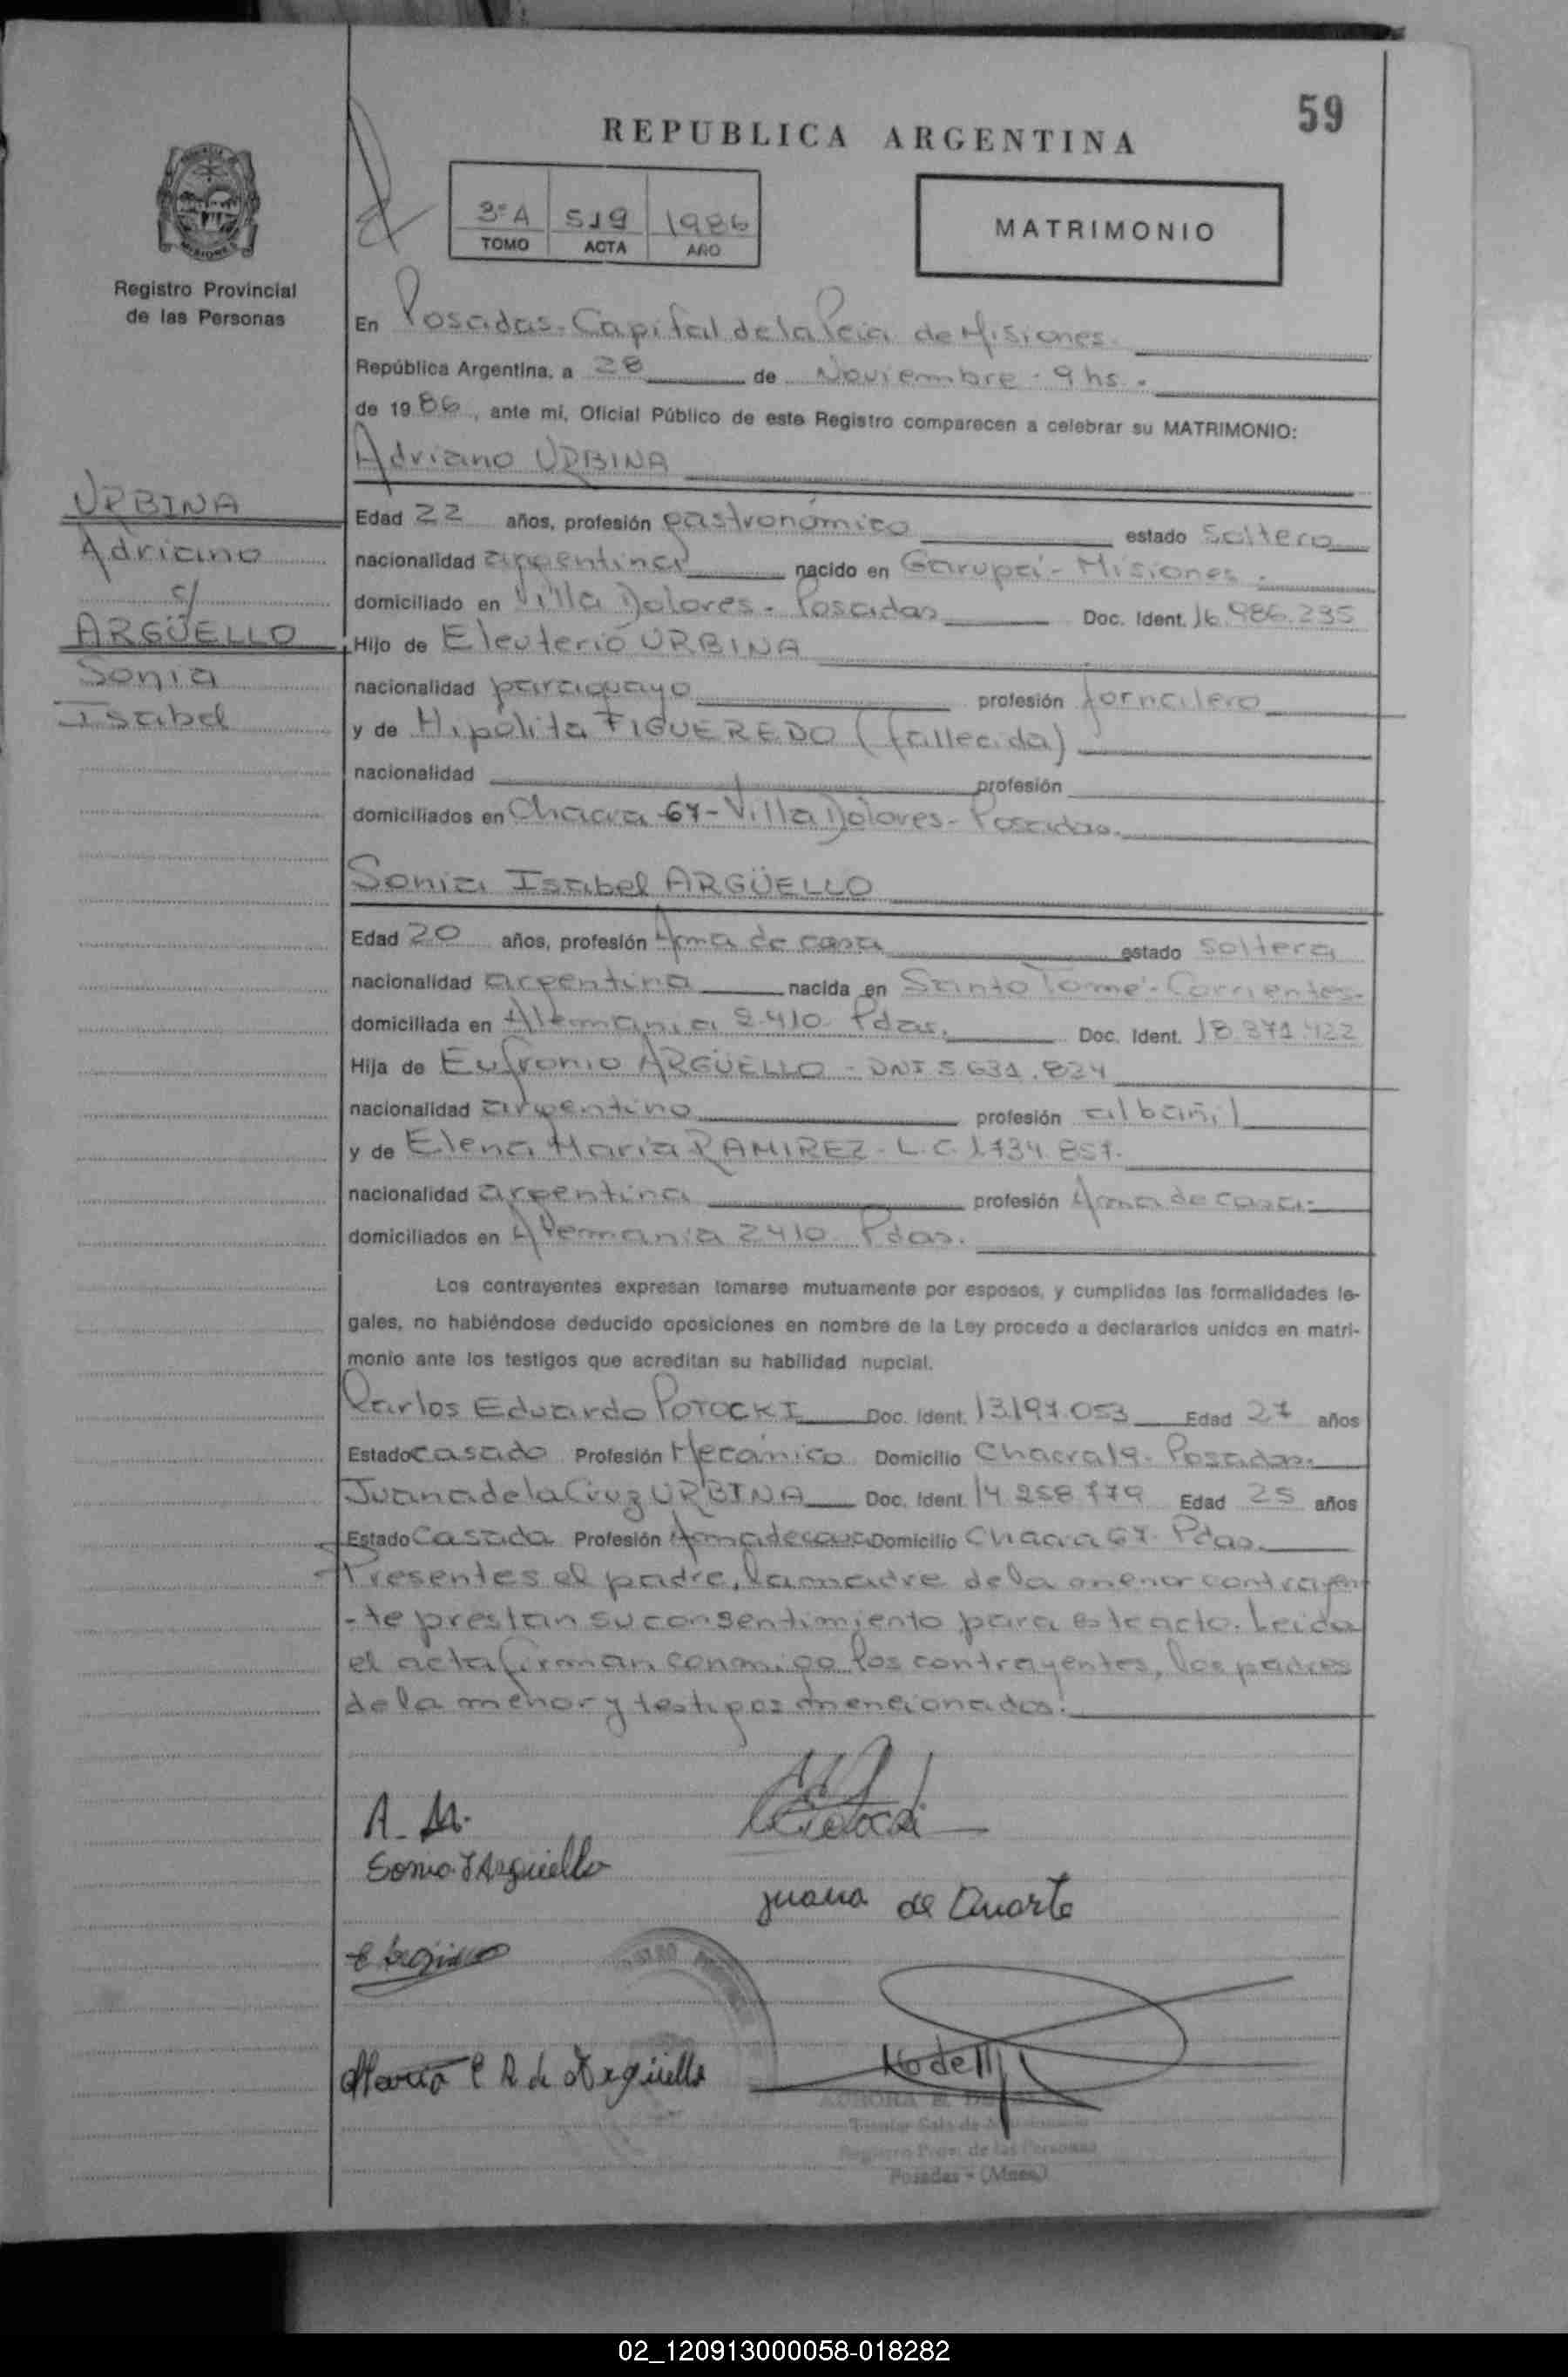 59
REPUBLICA ARGENTINA
3ºA 519 1986
TOMO ACTA AÑO
MATRIMONIO
Registro Provincial
de las Personas
En Posadas-Capital de la Pcia de Misiones
República Argentina, a 28 de Noviembre - 9 hs.
de 1986, ante mí, Oficial Público de este Registro comparecen a celebrar su MATRIMONIO:
Adriano URBINA
URBINA
Adriano
c/
ARGÜELLO
Sonia
Isabel
Edad 22 años, profesión gastronómico estado soltero
nacionalidad argentina nacido en Garupá - Misiones.
domiciliado en Villa Dolores - Posadas Doc. Ident. 16.986.235
Hijo de Eleuterio URBINA
nacionalidad paraguayo profesión jornalero
y de Hipólita FIGUEREDO (fallecida)
nacionalidad profesión
domiciliados en Chacra 67 - Villa Dolores - Posadas.
Sonia Isabel ARGÜELLO
Edad 20 años, profesión Ama de casa estado soltera
nacionalidad argentina nacida en Santo Tomé - Corrientes.
domiciliada en Alemania 2.410 Pdas. Doc. Ident. 18.371.422
Hija de Eufronio ARGÜELLO - DNI 5.631.824
nacionalidad argentino profesión albañil
y de Elena María RAMIREZ - L.C. 1.734.857.
nacionalidad argentina profesión Ama de casa.
domiciliados en Alemania 2410 Pdas.
Los contrayentes expresan tomarse mutuamente por esposos, y cumplidas las formalidades le-
gales, no habiéndose deducido oposiciones en nombre de la Ley procedo a declararlos unidos en matri-
monio ante los testigos que acreditan su habilidad nupcial.
Carlos Eduardo POTOCKI Doc. Ident. 13.197.053 Edad 27 años
Estado casado Profesión Mecánico Domicilio Chacra 19 - Posadas.
Juana de la Cruz URBINA Doc. Ident. 14.258.779 Edad 25 años
Estado Casada Profesión Ama de casa Domicilio Chacra 67 - Pdas.
Presentes el padre, la madre de la menor contrayen
-te prestan su consentimiento para este acto. Leida
el acta firman conmigo los contrayentes, los padres
de la menor y testigos mencionados.
A. U.
Sonia I Argüello
Juana de Duarte
María E R de Argüello
AURORA
Titular Sala de
Registro Prov. de las Personas
Posadas - (Mnes.)
02_120913000058-018282